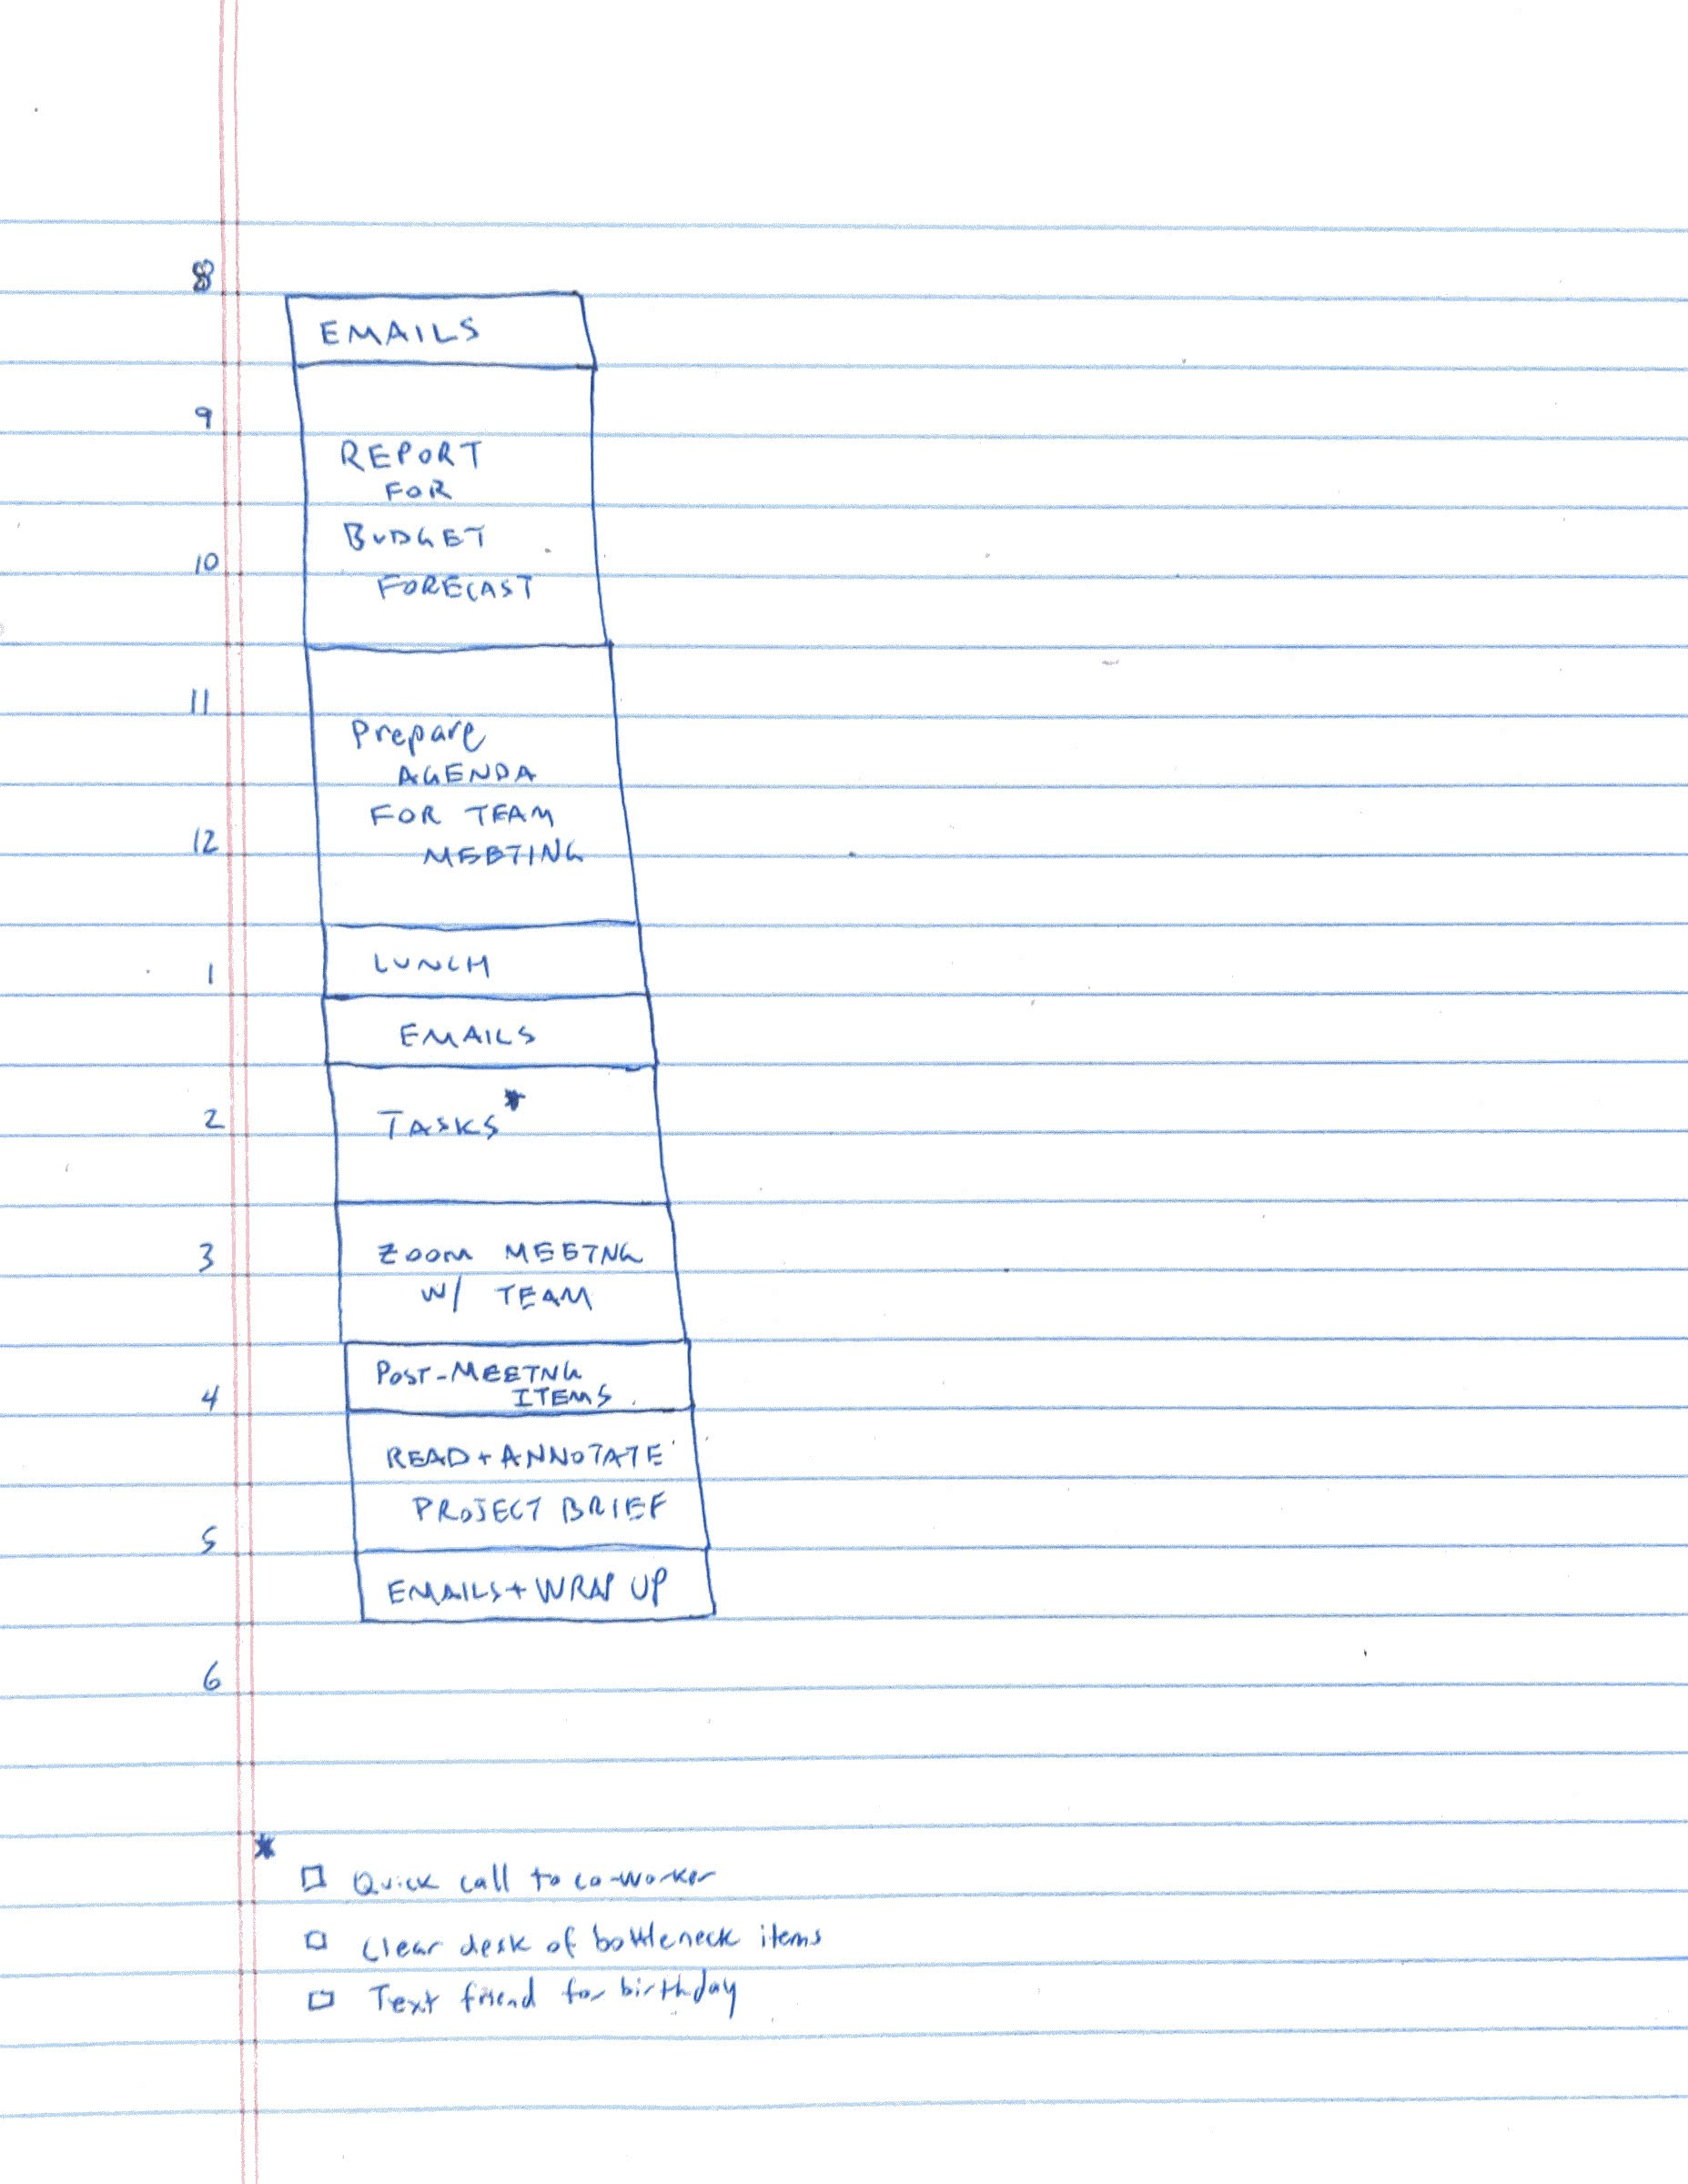 8
EMAILS
9
REPORT
FOR
BUDGET
10
FORECAST
11
Prepare
AGENDA
FOR TEAM
12
MEETING
LUNCH
1
EMAILS
2
TASKS*
3
ZOOM MEETNG
W/ TEAM
POST-MEETNG
4
ITEMS
READ + ANNOTATE
PROJECT BRIEF
5
EMAILS + WRAP UP
6
*
Quick call to co-worker
Clear desk of bottleneck items
Text friend for birthday